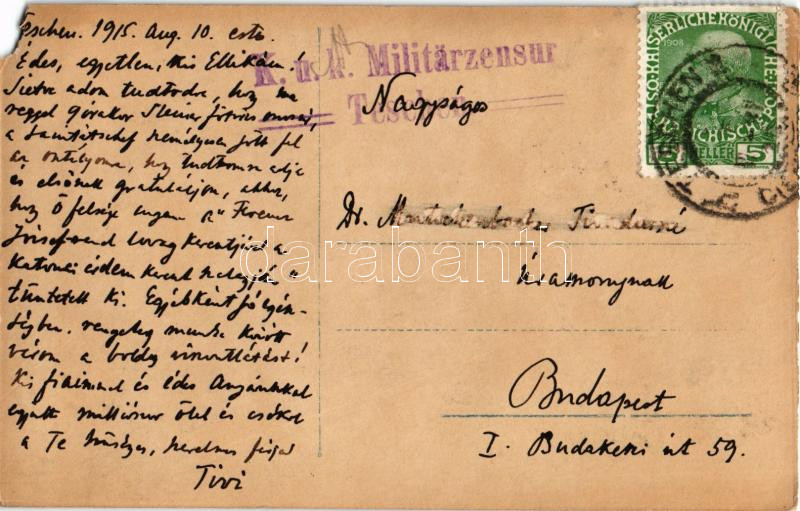 Teschen. 1915. Aug. 10. este
Édes, egyetlen, kis Ellikém!
Sietve adom tudtodra, hogy ma
reggel 9 órakor
a személyesen jött fel
az osztályomra, hogy tudtomra adja
és elsőnek gratuláljon, ahhoz,
hogy Ő felsége engem a" Ferenc
József-rend lovag keresztjével a
katonai érdem kereszt szalagján"
tüntetett ki. Egyébként jó egész-
ségben, rengeteg munka között
várom a boldog viszontlátást!
Kis fiaimmal és édes Anyánkkal
együtt milliószor ölel és csókol
a Te hűséges, szerelmes férjed
Tivi
K. u. k. Militärzensur
Teschen
Nagyságos
Dr. Tivadarné
Úrasszonynak
Budapest
I. Budakeszi út 59.
KAISERLICHE KÖNIGLICHE
ÖSTERREICHISCHE POST
1908
5 HELLER 5
TESCHEN
darabanth